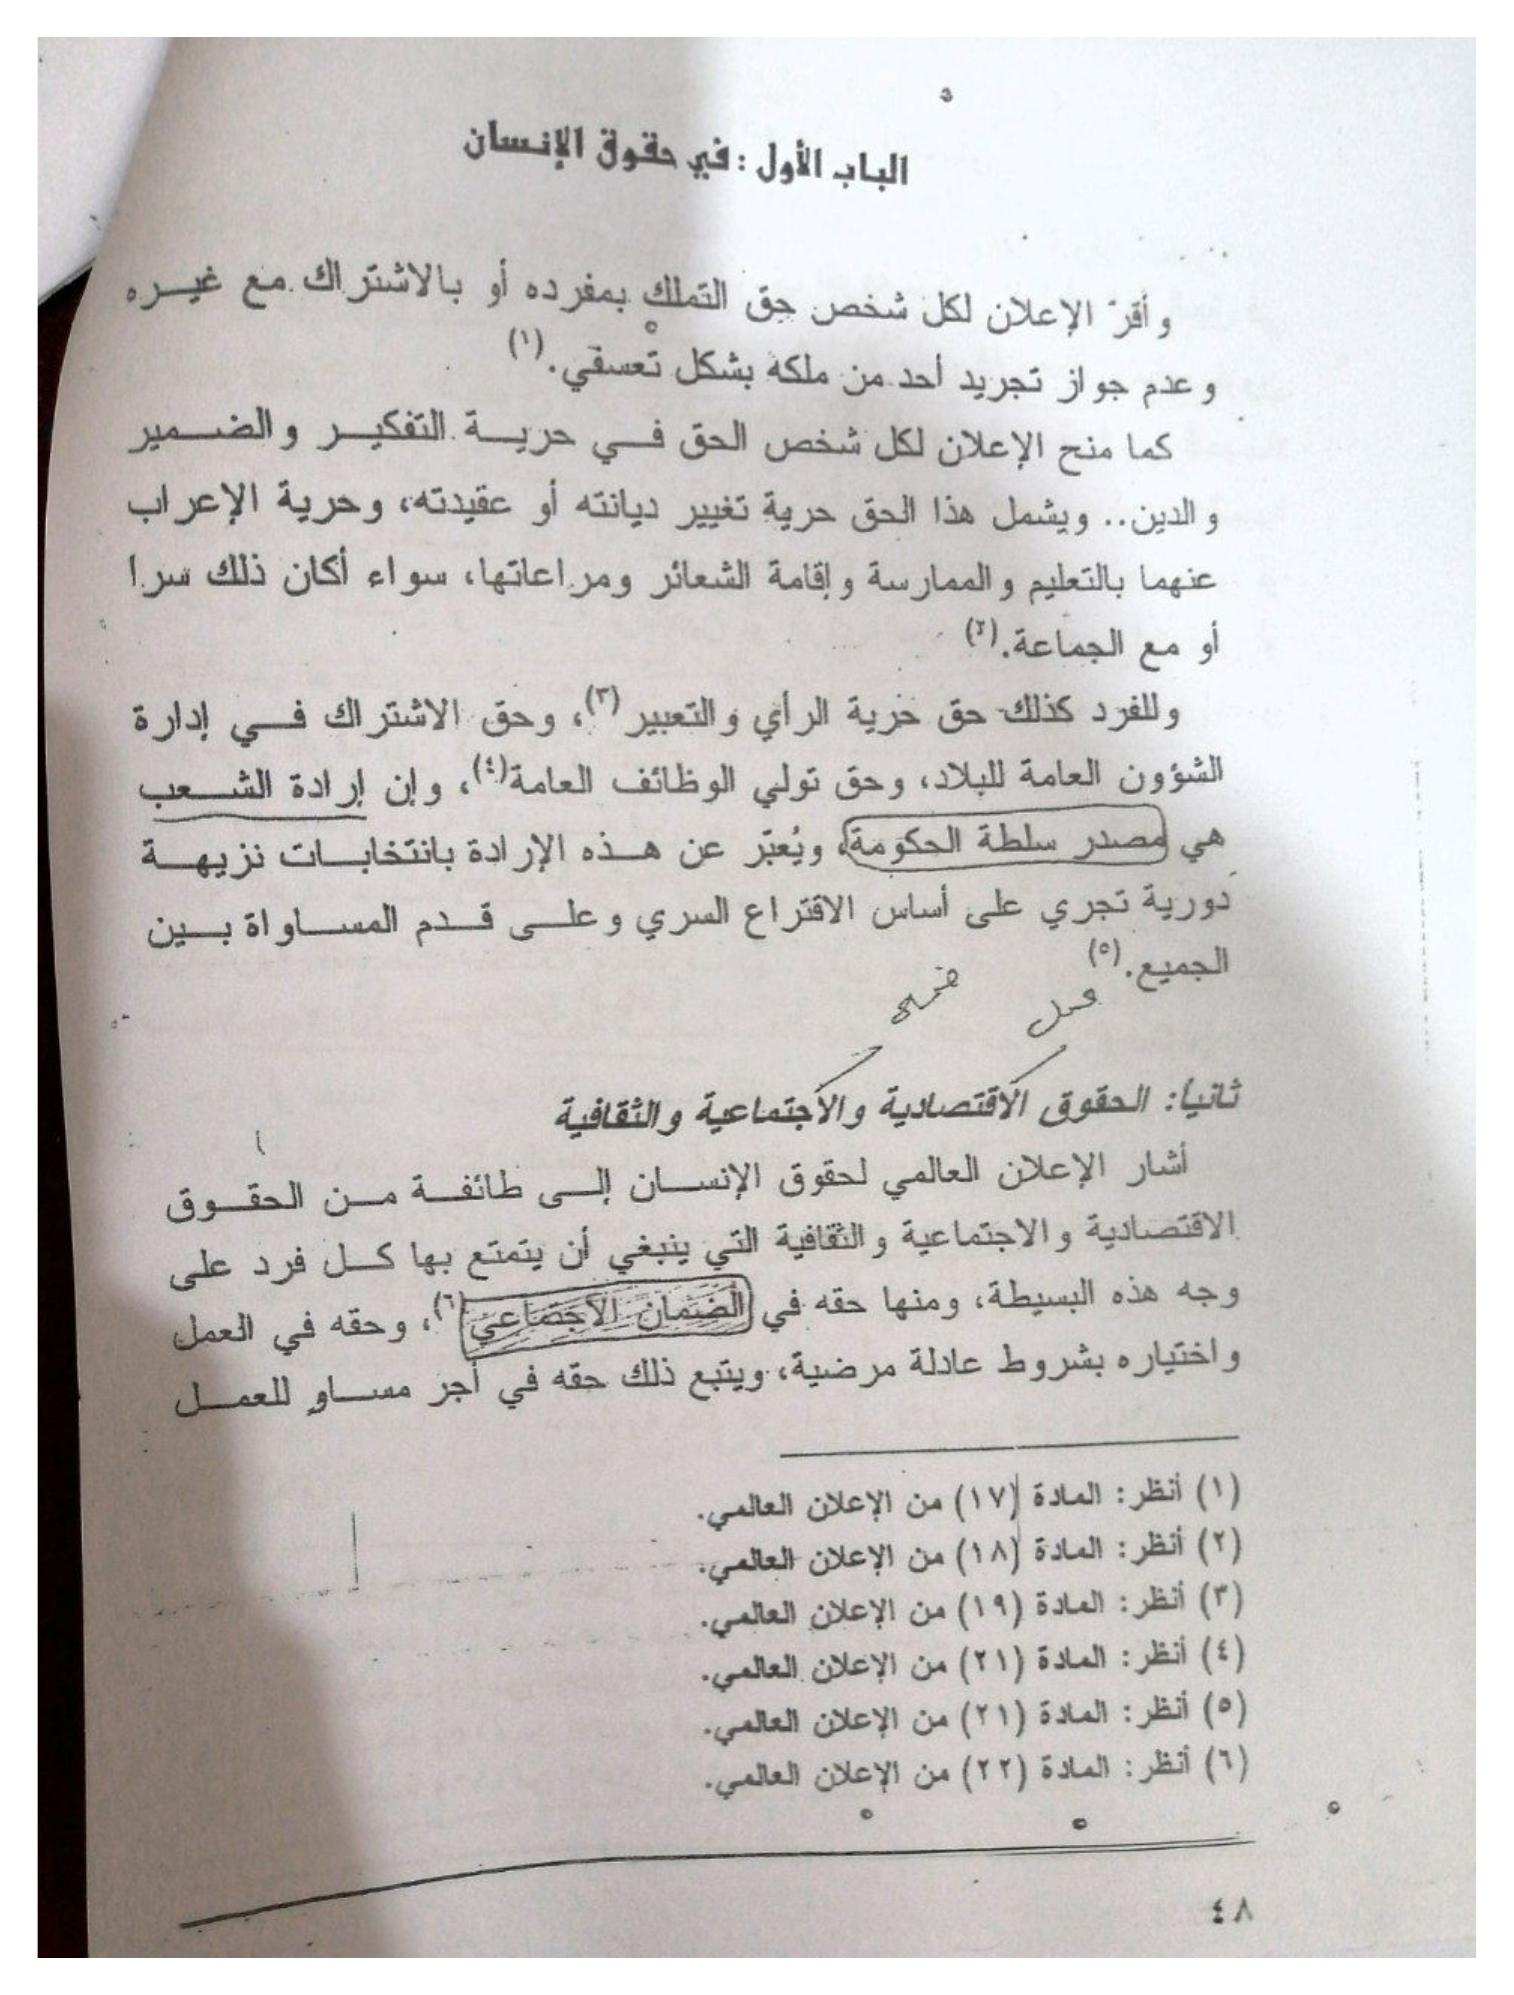 الباب الأول: في حقوق الإنسان
وأقرّ الإعلان لكل شخص حق التملك بمفرده أو بالاشتراك مع غيره
وعدم جواز تجريد أحد من ملكه بشكل تعسفي.(١)
كما منح الإعلان لكل شخص الحق في حرية التفكير والضمير
والدين.. ويشمل هذا الحق حرية تغيير ديانته أو عقيدته، وحرية الإعراب
عنهما بالتعليم والممارسة وإقامة الشعائر ومراعاتها، سواء أكان ذلك سرا
أو مع الجماعة.(٢)
وللفرد كذلك حق حرية الرأي والتعبير(٣)، وحق الاشتراك في إدارة
الشؤون العامة للبلاد، وحق تولي الوظائف العامة(٤)، وإن إرادة الشعب
هي مصدر سلطة الحكومة، ويُعبّر عن هذه الإرادة بانتخابات نزيهة
دورية تجري على أساس الاقتراع السري وعلى قدم المساواة بين
الجميع.(٥)
عمل
ثانيا: الحقوق الاقتصادية والاجتماعية والثقافية
أشار الإعلان العالمي لحقوق الإنسان إلى طائفة من الحقوق
الاقتصادية والاجتماعية والثقافية التي ينبغي أن يتمتع بها كل فرد على
وجه هذه البسيطة، ومنها حقه في الضمان الاجتماعي(٦)، وحقه في العمل
واختياره بشروط عادلة مرضية، ويتبع ذلك حقه في أجر مساوٍ للعمل
(١) أنظر: المادة (١٧) من الإعلان العالمي.
(٢) أنظر: المادة (١٨) من الإعلان العالمي.
(٣) أنظر: المادة (١٩) من الإعلان العالمي.
(٤) أنظر: المادة (٢١) من الإعلان العالمي.
(٥) أنظر: المادة (٢١) من الإعلان العالمي.
(٦) أنظر: المادة (٢٢) من الإعلان العالمي.
٤٨